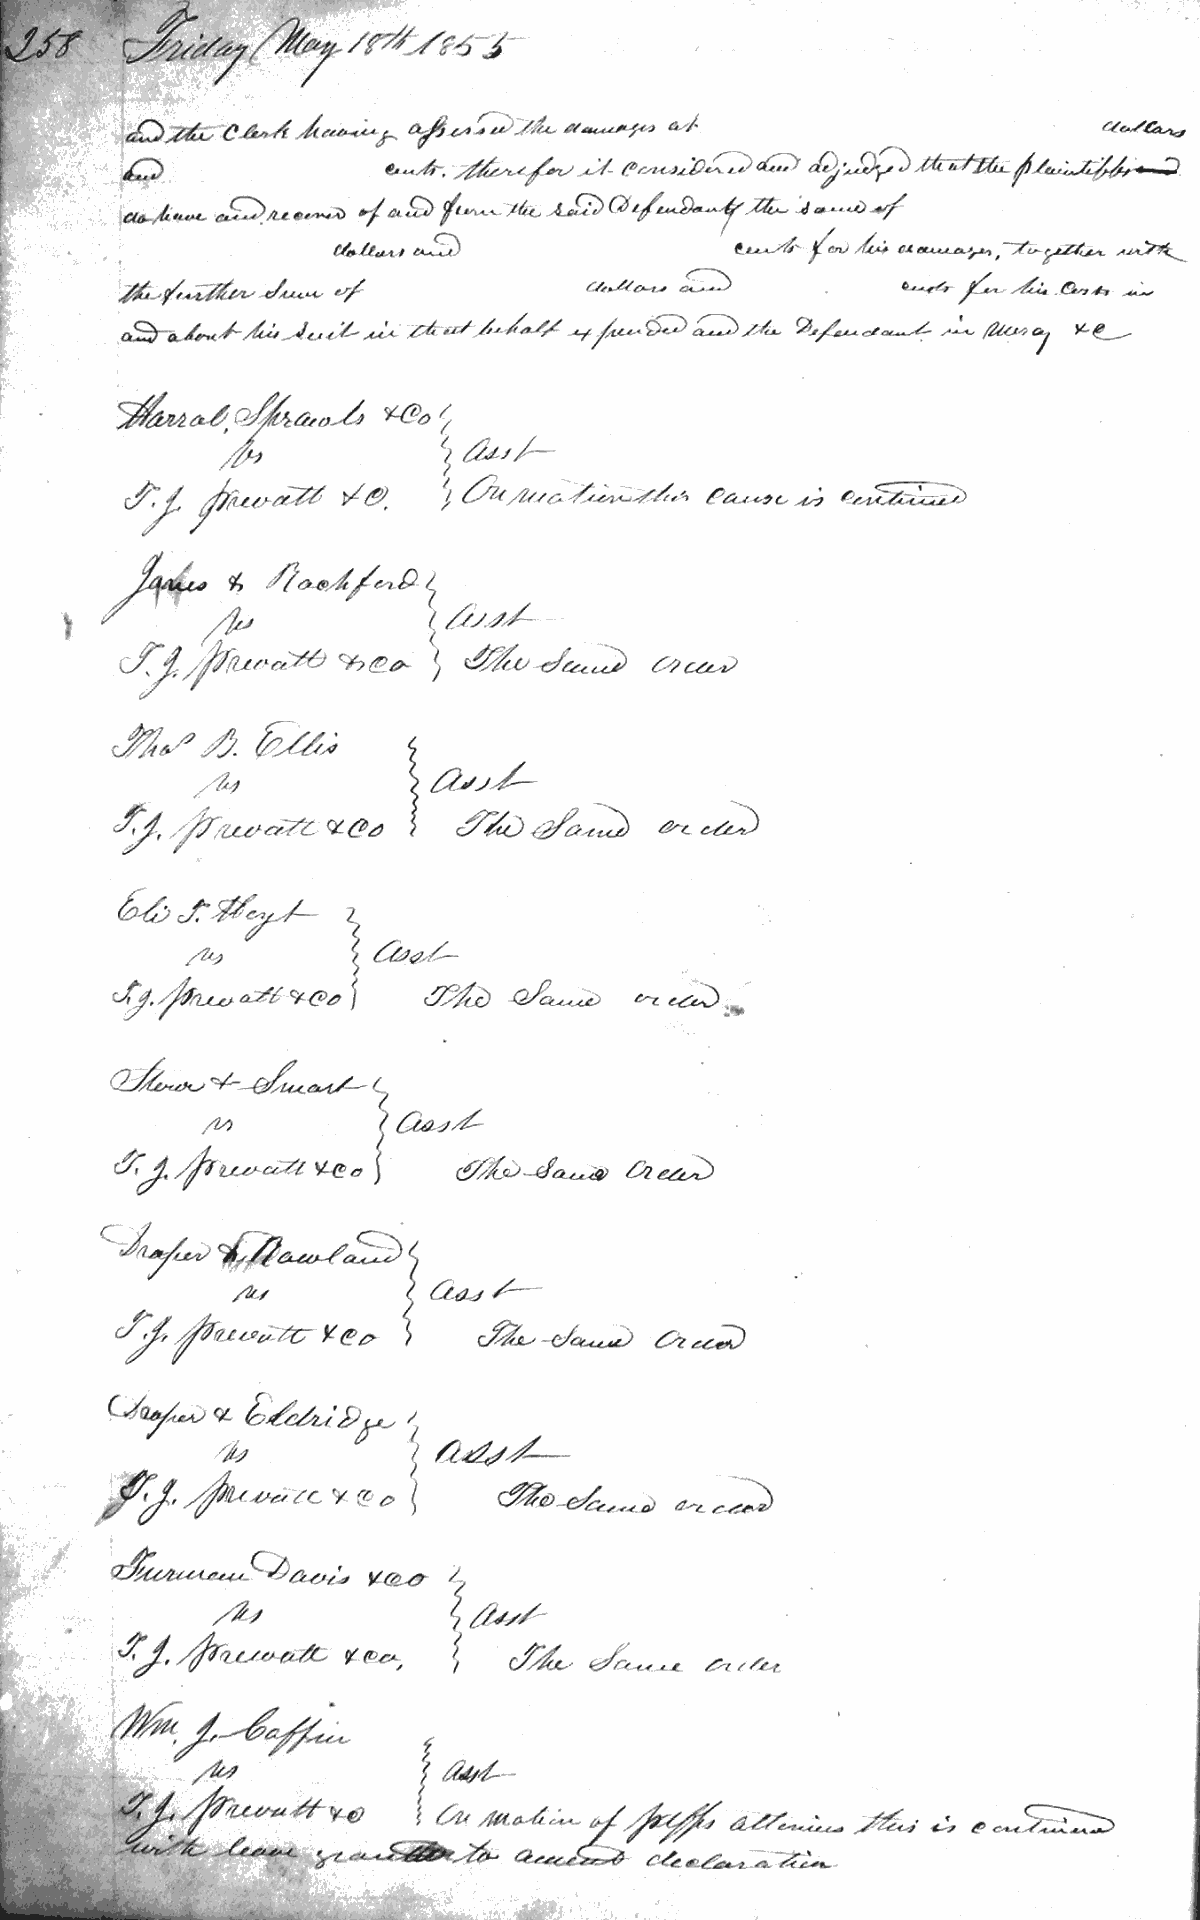 258 Friday May 18th 1855
and the Clerk having assessed the damages at dollars
and cents. therefor it considered and adjudged that the plaintiffs and
do have and recover of and from the said Defendant the same of
dollars and cents for his damages, together with
the further Sum of dollars and cents for his Costs in
and about his Suit in that behalf expended and the Defendant in Mercy &C
Harral, Sprawls & Co
vs Asst
T. J. Prewatt & C. On motion this cause is continued
James & Rochford
vs Asst
T. J. Prewatt & Co The Same order
Thos B. Ellis
vs Asst
T. J. Prewatt & Co The Same order
Eli T. Hoyt
vs Asst
T. J. Prewatt & Co The Same order
Stow & Smart
vs Asst
T. J. Prewatt & Co The Same Order
Draper & Rowland
vs Asst
T. J. Prewatt & Co The Same Order
Draper & Eldridge
vs Asst
T. J. Prewatt & Co The Same order
Furman Davis & Co
vs Asst
T. J. Prewatt & Co, The Same order
Wm. J. Coffin
vs Asst
T. J. Prewatt & Co On motion of ptffs attornies this is continued
with leave granted to amend declaration